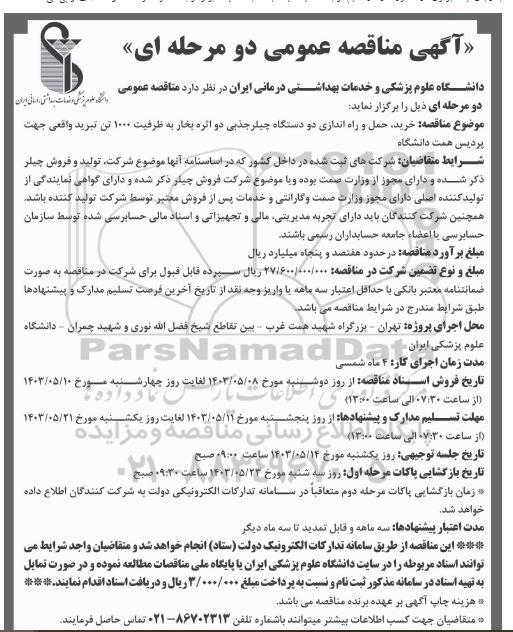 «آگهی مناقصه عمومی دو مرحله ای»
دانشگاه علوم پزشکی و خدمات بهداشتی درمانی ایران
دانشگاه علوم پزشکی و خدمات بهداشتی درمانی ایران در نظر دارد مناقصه عمومی
دو مرحله ای ذیل را برگزار نماید:
موضوع مناقصه: خرید، حمل و راه اندازی دو دستگاه چیلرجذبی دو اثره بخار به ظرفیت ۱۰۰۰ تن تبرید واقعی جهت
پردیس همت دانشگاه
شرایط متقاضیان: شرکت های ثبت شده در داخل کشور که در اساسنامه آنها موضوع شرکت، تولید و فروش چیلر
ذکر شده و دارای مجوز از وزارت صمت بوده ویا موضوع شرکت فروش چیلر ذکر شده و دارای گواهی نمایندگی از
تولیدکننده اصلی دارای مجوز وزارت صمت وگارانتی و خدمات پس از فروش معتبر توسط شرکت تولید کننده باشد.
همچنین شرکت کنندگان باید دارای تجربه مدیریتی، مالی و تجهیزاتی و اسناد مالی حسابرسی شده توسط سازمان
حسابرسی یا اعضاء جامعه حسابداران رسمی باشند.
مبلغ برآورد مناقصه: درحدود هفتصد و پنجاه میلیارد ریال
مبلغ و نوع تضمین شرکت در مناقصه: ۲۷/۶۰۰/۰۰۰/۰۰۰ ریال سپرده قابل قبول برای شرکت در مناقصه به صورت
ضمانتنامه معتبر بانکی با حداقل اعتبار سه ماهه یا واریز وجه نقد از تاریخ آخرین فرصت تسلیم مدارک و پیشنهادها
طبق شرایط مندرج در شرایط مناقصه می باشد.
محل اجرای پروژه: تهران – بزرگراه شهید همت غرب – بین تقاطع شیخ فضل الله نوری و شهید چمران – دانشگاه
علوم پزشکی ایران
مدت زمان اجرای کار: ۴ ماه شمسی
تاریخ فروش اسناد مناقصه: از روز دوشنبه مورخ ۱۴۰۳/۰۵/۰۸ لغایت روز چهارشنبه مورخ ۱۴۰۳/۰۵/۱۰
(از ساعت ۰۷:۳۰ الی ساعت ۱۳:۰۰)
مهلت تسلیم مدارک و پیشنهادها: از روز پنجشنبه مورخ ۱۴۰۳/۰۵/۱۱ لغایت روز یکشنبه مورخ ۱۴۰۳/۰۵/۲۱
(از ساعت ۰۷:۳۰ الی ساعت ۱۳:۰۰)
تاریخ جلسه توجیهی: روز یکشنبه مورخ ۱۴۰۳/۰۵/۱۴ ساعت ۰۹:۰۰ صبح
تاریخ بازگشایی پاکات مرحله اول: روز سه شنبه مورخ ۱۴۰۳/۰۵/۲۳ ساعت ۰۹:۳۰ صبح
* زمان بازگشایی پاکات مرحله دوم متعاقباً در سامانه تدارکات الکترونیکی دولت به شرکت کنندگان اطلاع داده
خواهد شد.
مدت اعتبار پیشنهادها: سه ماهه و قابل تمدید تا سه ماه دیگر
*** این مناقصه از طریق سامانه تدارکات الکترونیک دولت (ستاد) انجام خواهد شد و متقاضیان واجد شرایط می
توانند اسناد مربوطه را در سایت دانشگاه علوم پزشکی ایران یا پایگاه ملی مناقصات مطالعه نموده و در صورت تمایل
به تهیه اسناد در سامانه مذکور ثبت نام و نسبت به پرداخت مبلغ ۳/۰۰۰/۰۰۰ ریال و دریافت اسناد اقدام نمایند.***
* هزینه چاپ آگهی بر عهده برنده مناقصه می باشد.
* متقاضیان جهت کسب اطلاعات بیشتر میتوانند باشماره تلفن ۸۶۷۰۲۳۱۳-۰۲۱ تماس حاصل فرمایند.
ParsNamadData